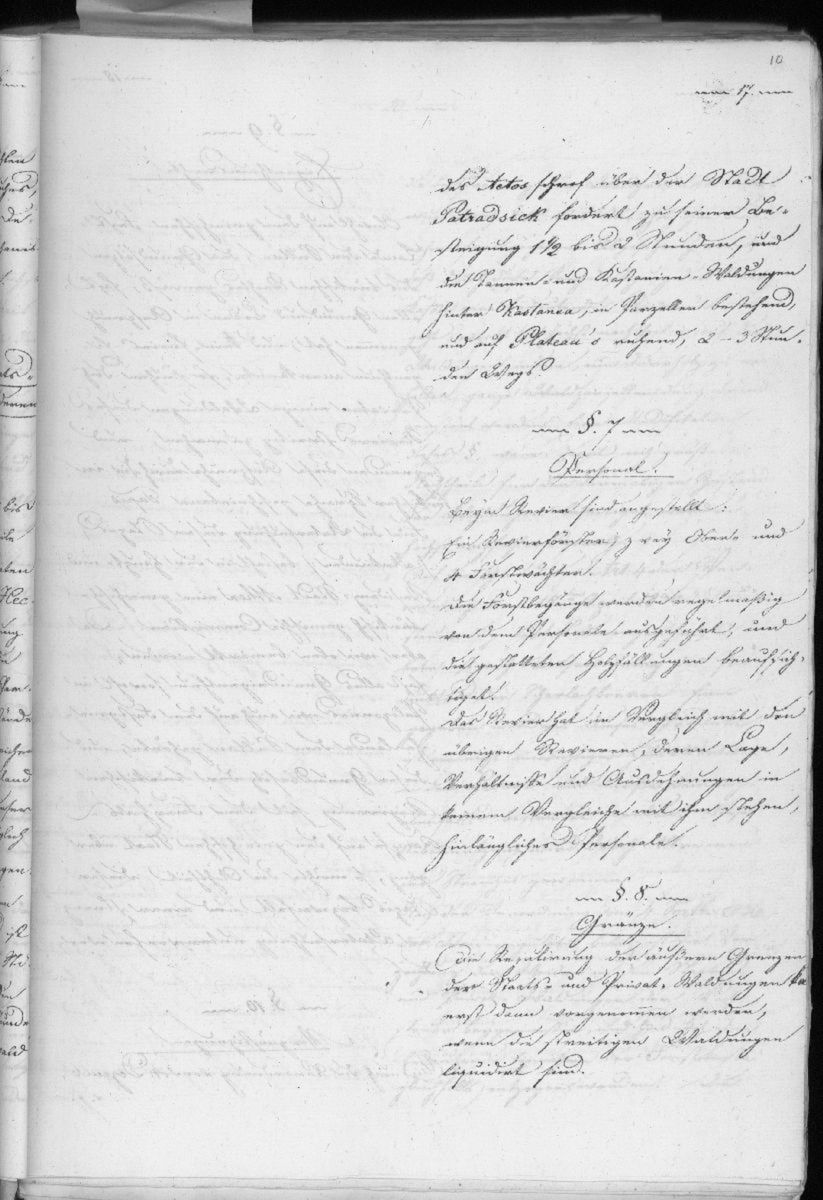 10
17.
des Aetos schrof über der Stadt
Patradsick fordert zu seiner Be-
steigung 1 1/2 bis 2 Stunden, und
die Tannen- und Kastanien-Waldungen
hinter Kastanea, in Parzellen bestehend,
und auf Plateau's ruhend, 2-3 Stun-
den Wegs.
§. 7
Personal.
Beym Revier sind angestellt:
Ein Revierförster, zwey Ober- und
4 Forstwächter.
Die Forstbegänge werden regelmäßig
von dem Personale ausgeführt, und
die gestatteten Holzfällungen beaufsich-
tiget.
Das Revier hat im Vergleich mit den
übrigen Revieren, deren Lage,
Verhältnisse und Ausdehnungen in
keinem Vergleiche mit ihm stehen,
hinlängliches Personale.
§. 8.
Gränze.
Die Regulirung der äußern Grenzen
der Staats- und Privat-Waldungen
erst dann vorgenommen werden,
wenn die streitigen Waldungen
liquidirt sind.